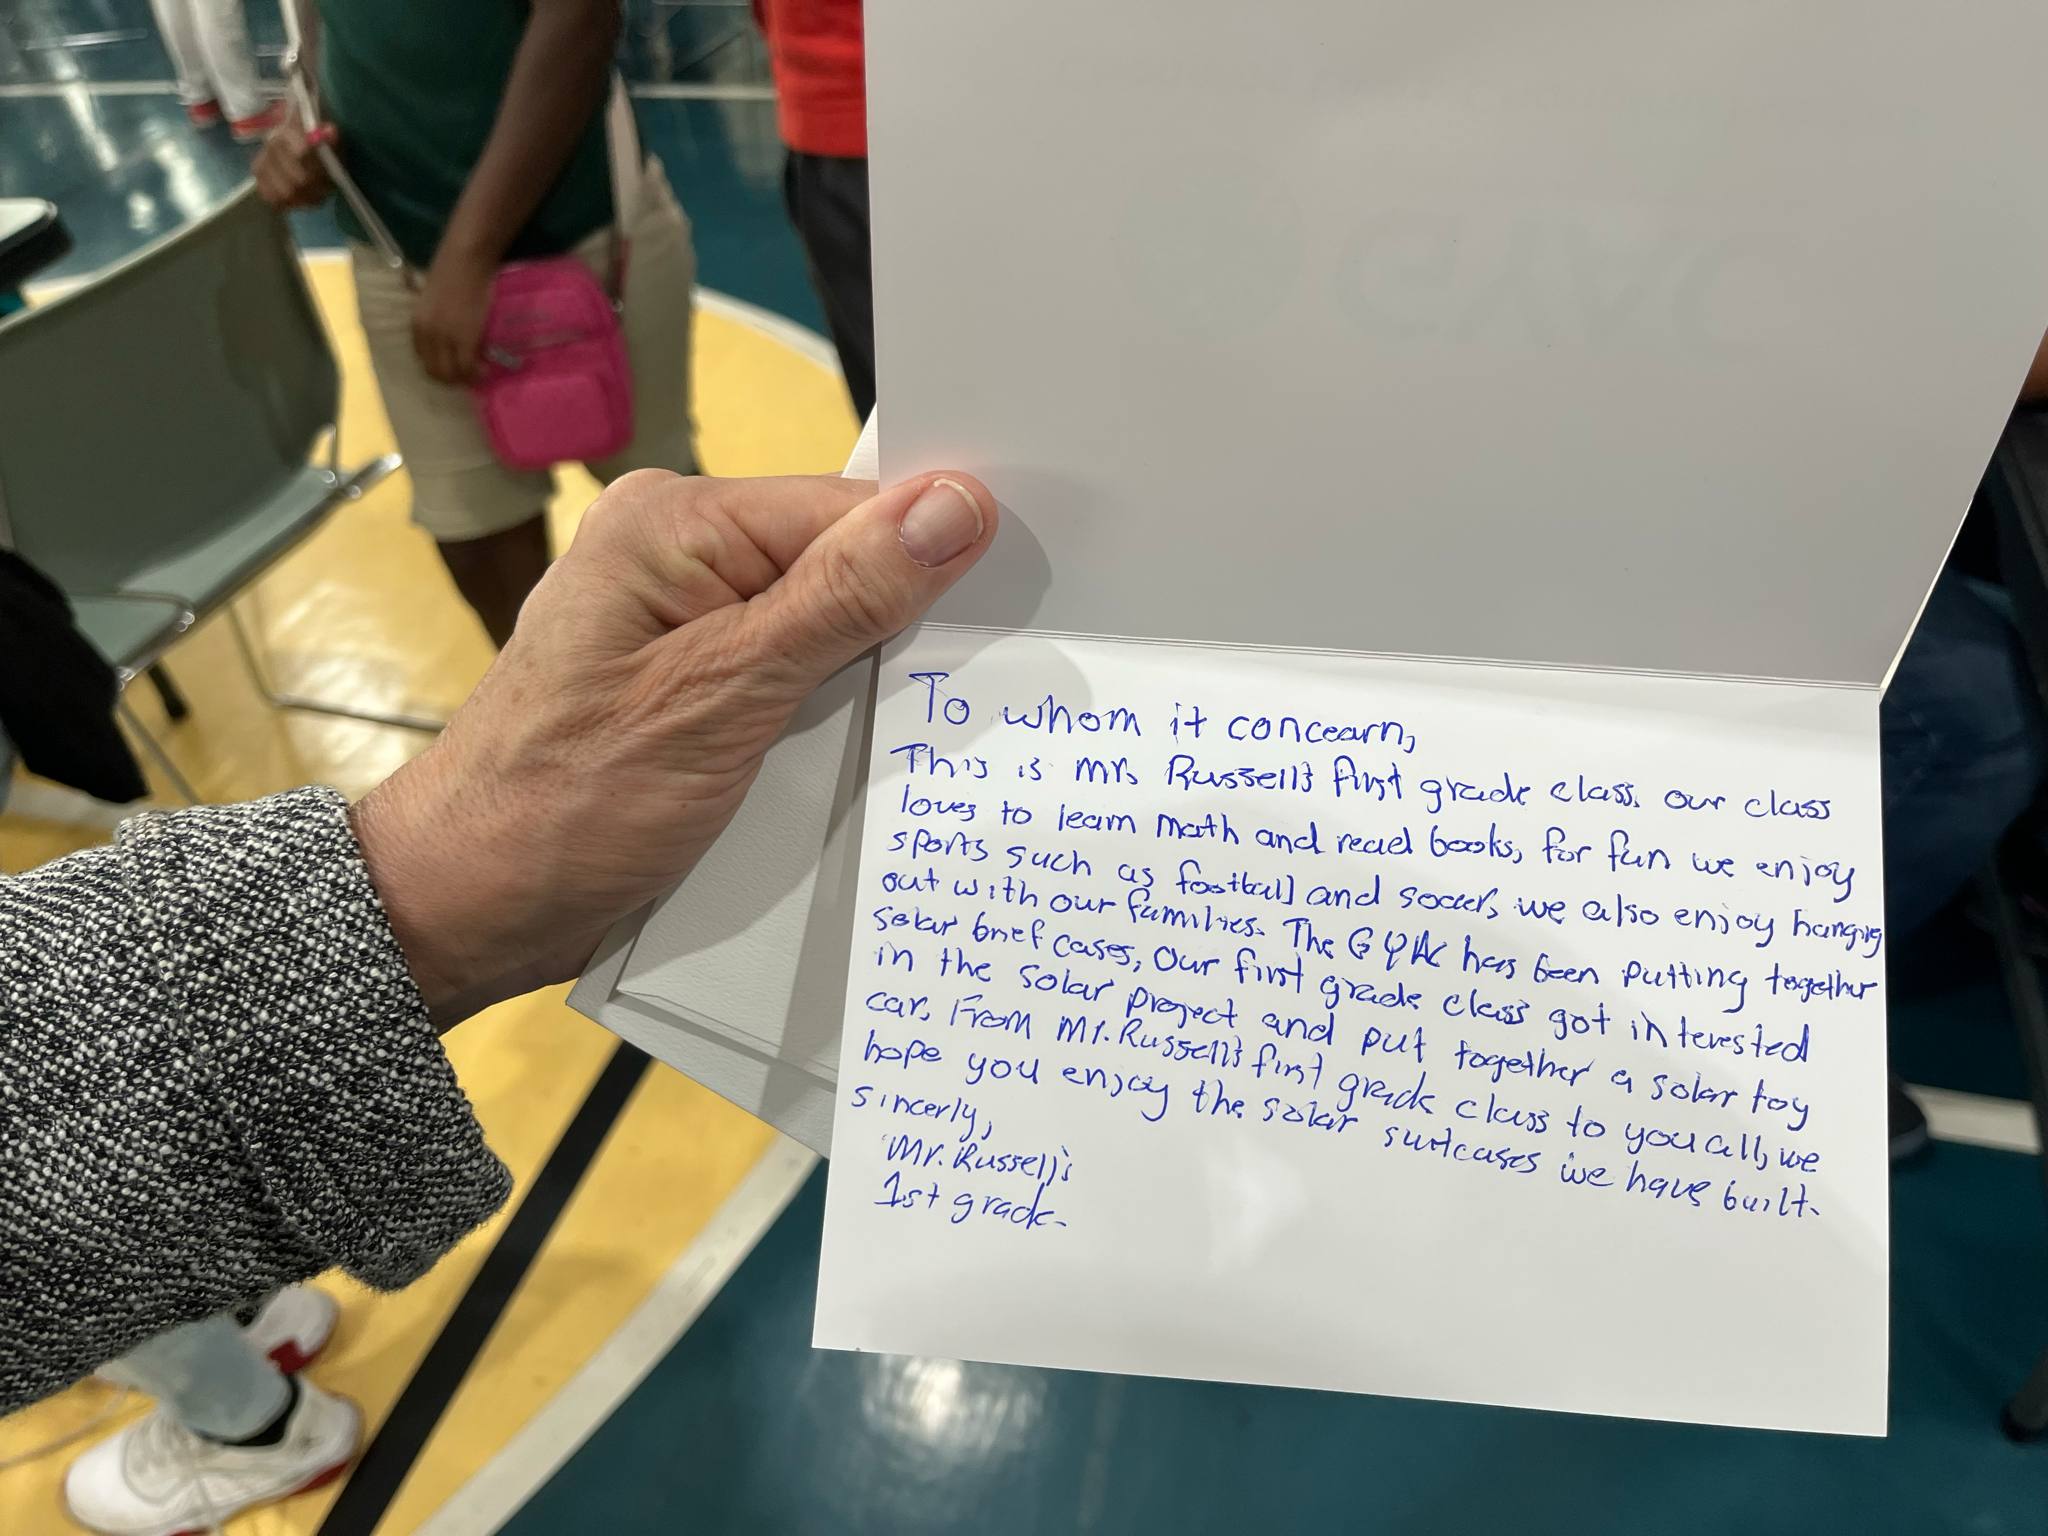 To whom it concearn,
This is Mr. Russell's first grade class. our class
loves to learn math and read books, for fun we enjoy
sports such as football and soccer, we also enjoy hanging
out with our families. The GYAC has been putting together
solar brief cases, Our first grade class got interested
in the solar project and put together a solar toy
car. From Mr. Russell's first grade class to you all, we
hope you enjoy the solar suitcases we have built.
sincerly,
Mr. Russell's
1st grade.